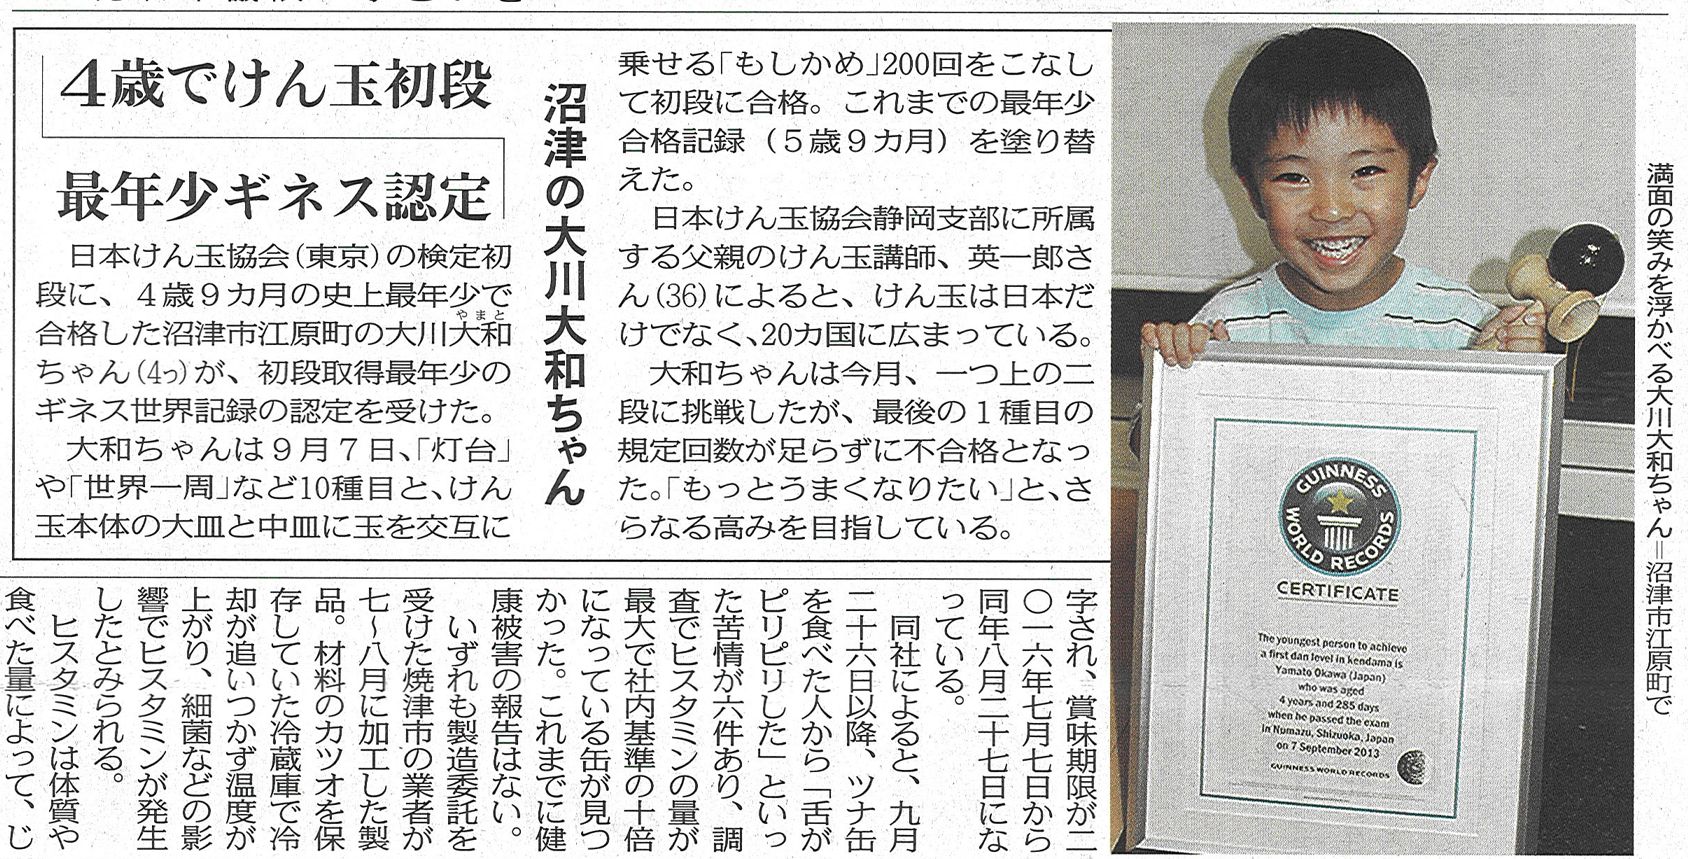 4歳でけん玉初段
最年少ギネス認定
沼津の大川大和ちゃん
日本けん玉協会(東京)の検定初
段に、4歳9カ月の史上最年少で
合格した沼津市江原町の大川大和
やまと
ちゃん(4つ)が、初段取得最年少の
ギネス世界記録の認定を受けた。
大和ちゃんは9月7日、「灯台」
や「世界一周」など10種目と、けん
玉本体の大皿と中皿に玉を交互に
乗せる「もしかめ」200回をこなし
て初段に合格。これまでの最年少
合格記録(5歳9カ月)を塗り替
えた。
日本けん玉協会静岡支部に所属
する父親のけん玉講師、英一郎さ
ん(36)によると、けん玉は日本だ
けでなく、20カ国に広まっている。
大和ちゃんは今月、一つ上の二
段に挑戦したが、最後の1種目の
規定回数が足らずに不合格となっ
た。「もっとうまくなりたい」と、さ
らなる高みを目指している。
GUINNESS
WORLD RECORDS
CERTIFICATE
The youngest person to achieve
a first dan level in kendama is
Yamato Okawa (Japan)
who was aged
4 years and 285 days
when he passed the exam
in Numazu, Shizuoka, Japan
on 7 September 2013
GUINNESS WORLD RECORDS
満面の笑みを浮かべる大川大和ちゃん=沼津市江原町で
字され、賞味期限が二
〇一六年七月七日から
同年八月二十七日にな
っている。
同社によると、九月
二十六日以降、ツナ缶
を食べた人から「舌が
ピリピリした」といっ
た苦情が六件あり、調
査でヒスタミンの量が
最大で社内基準の十倍
になっている缶が見つ
かった。これまでに健
康被害の報告はない。
いずれも製造委託を
受けた焼津市の業者が
七～八月に加工した製
品。材料のカツオを保
存していた冷蔵庫で冷
却が追いつかず温度が
上がり、細菌などの影
響でヒスタミンが発生
したとみられる。
ヒスタミンは体質や
食べた量によって、じ